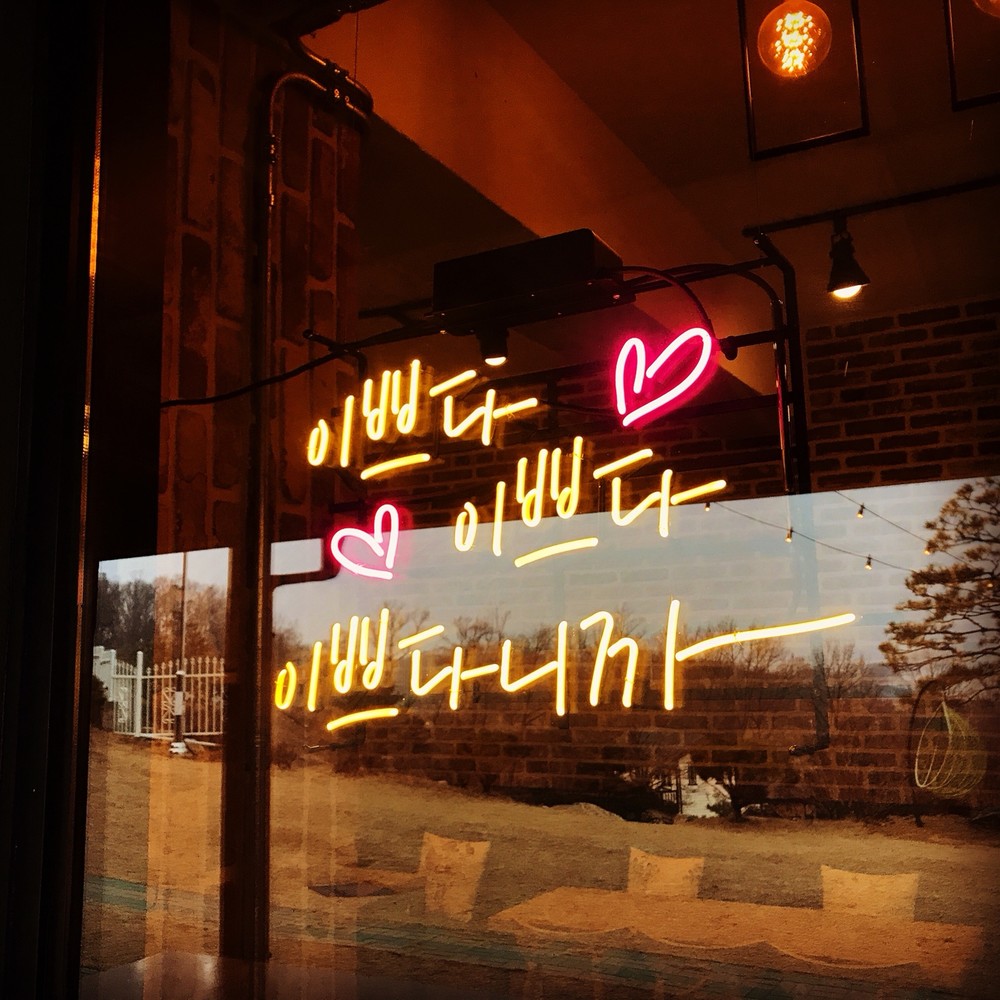 이쁘다
이쁘다
이쁘다니까